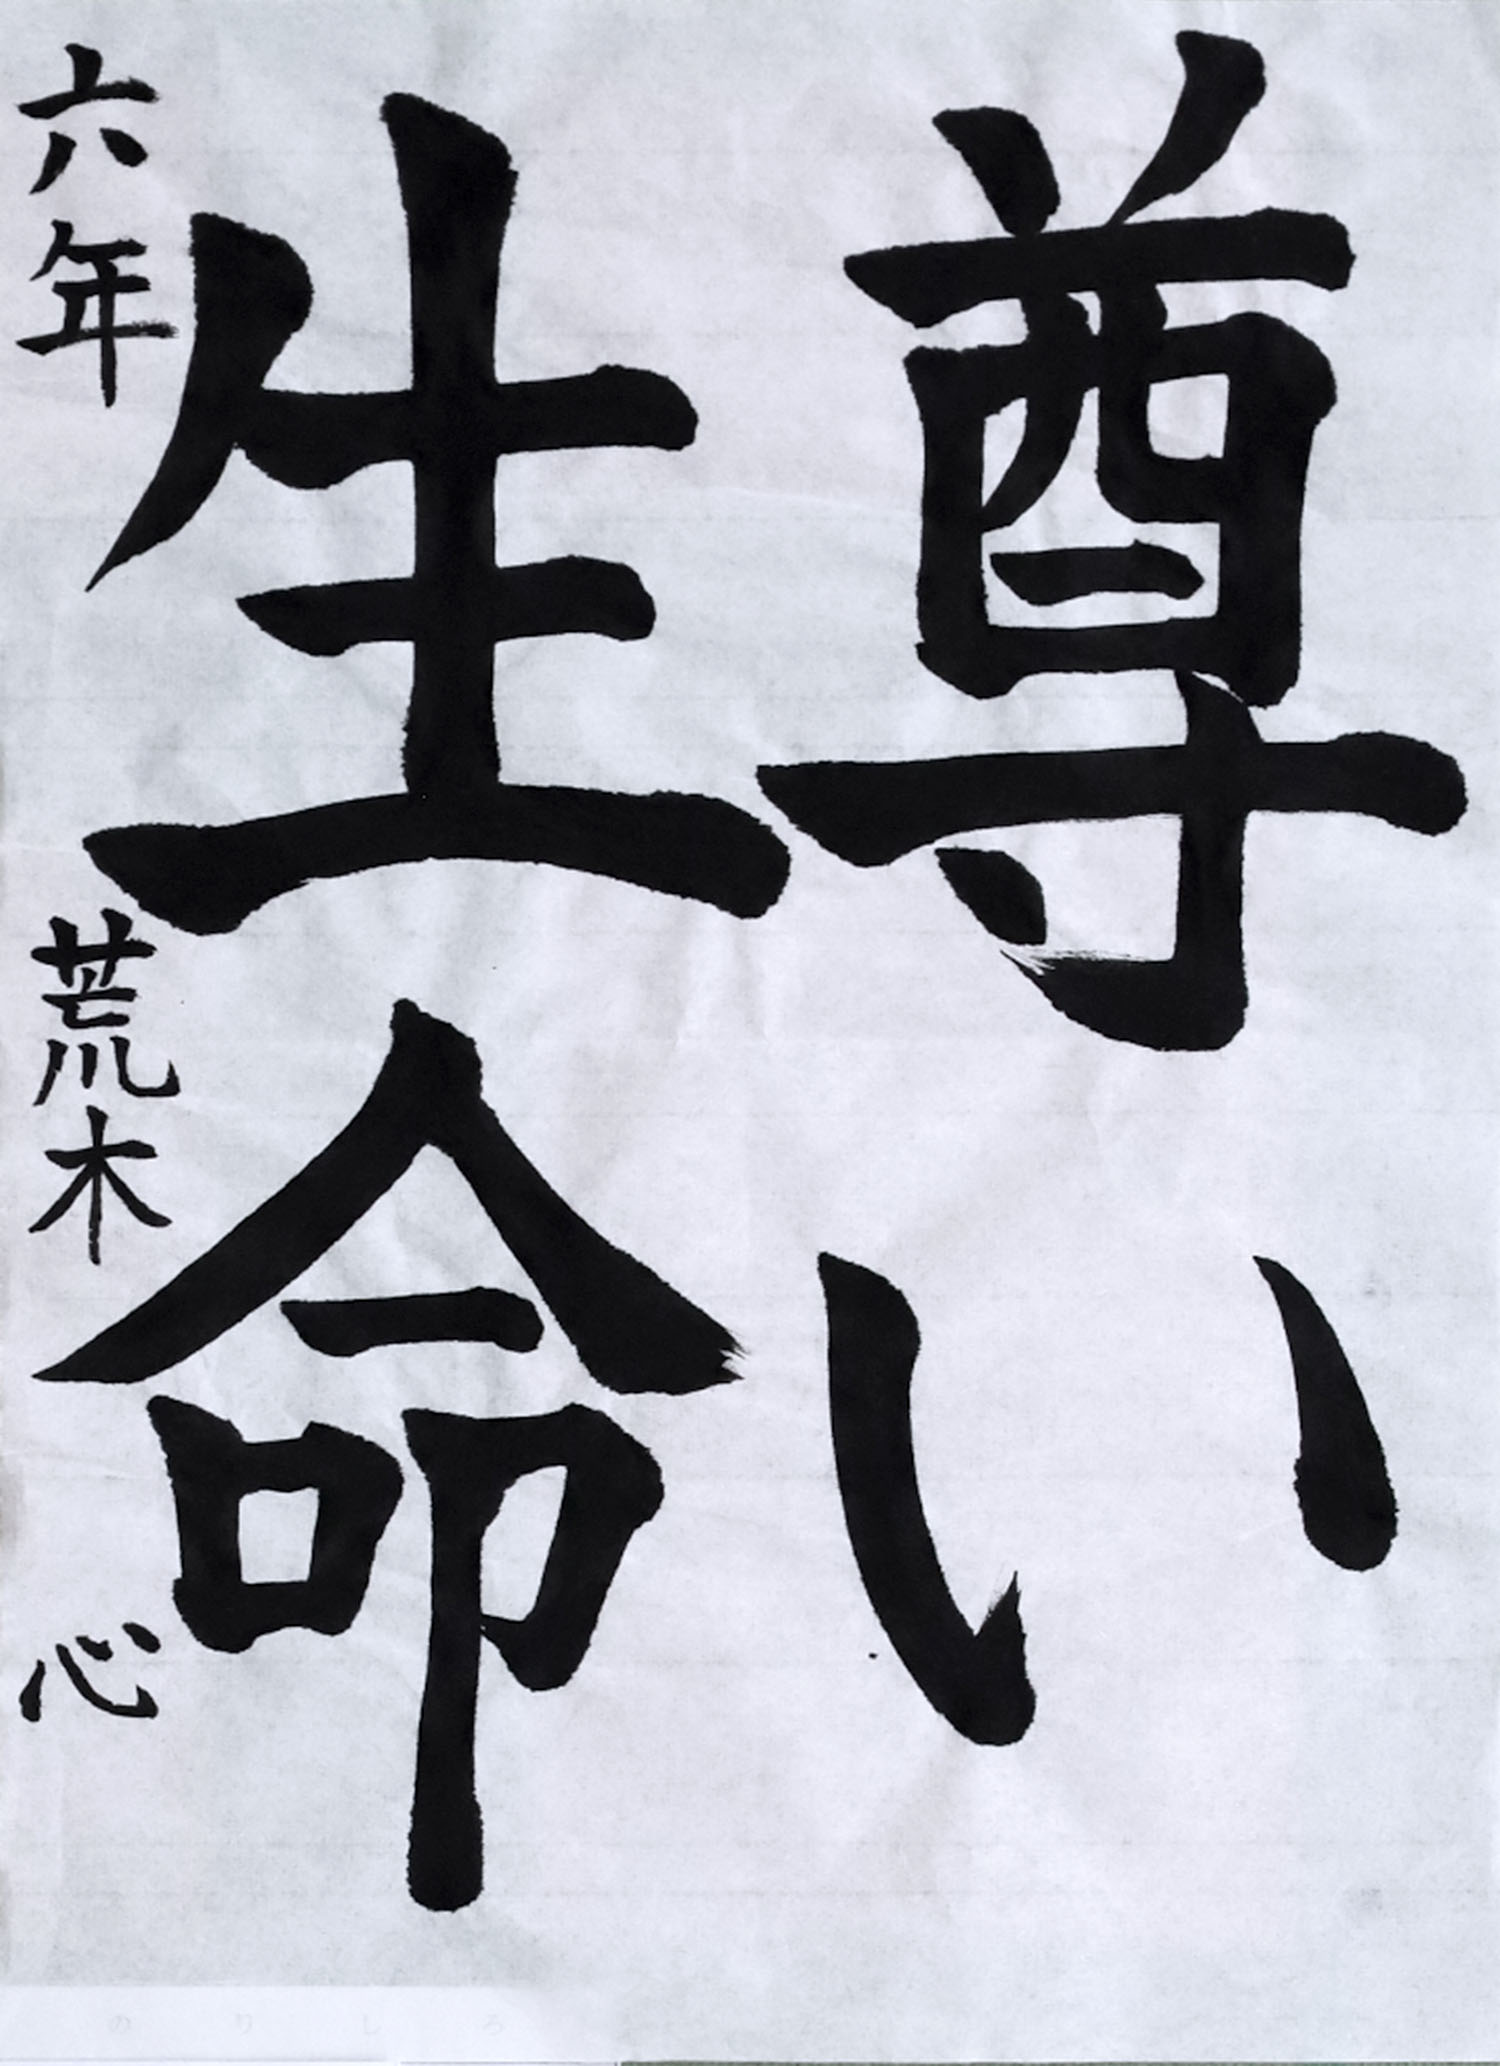 尊い
生命
六年 荒木 心
のりしろ